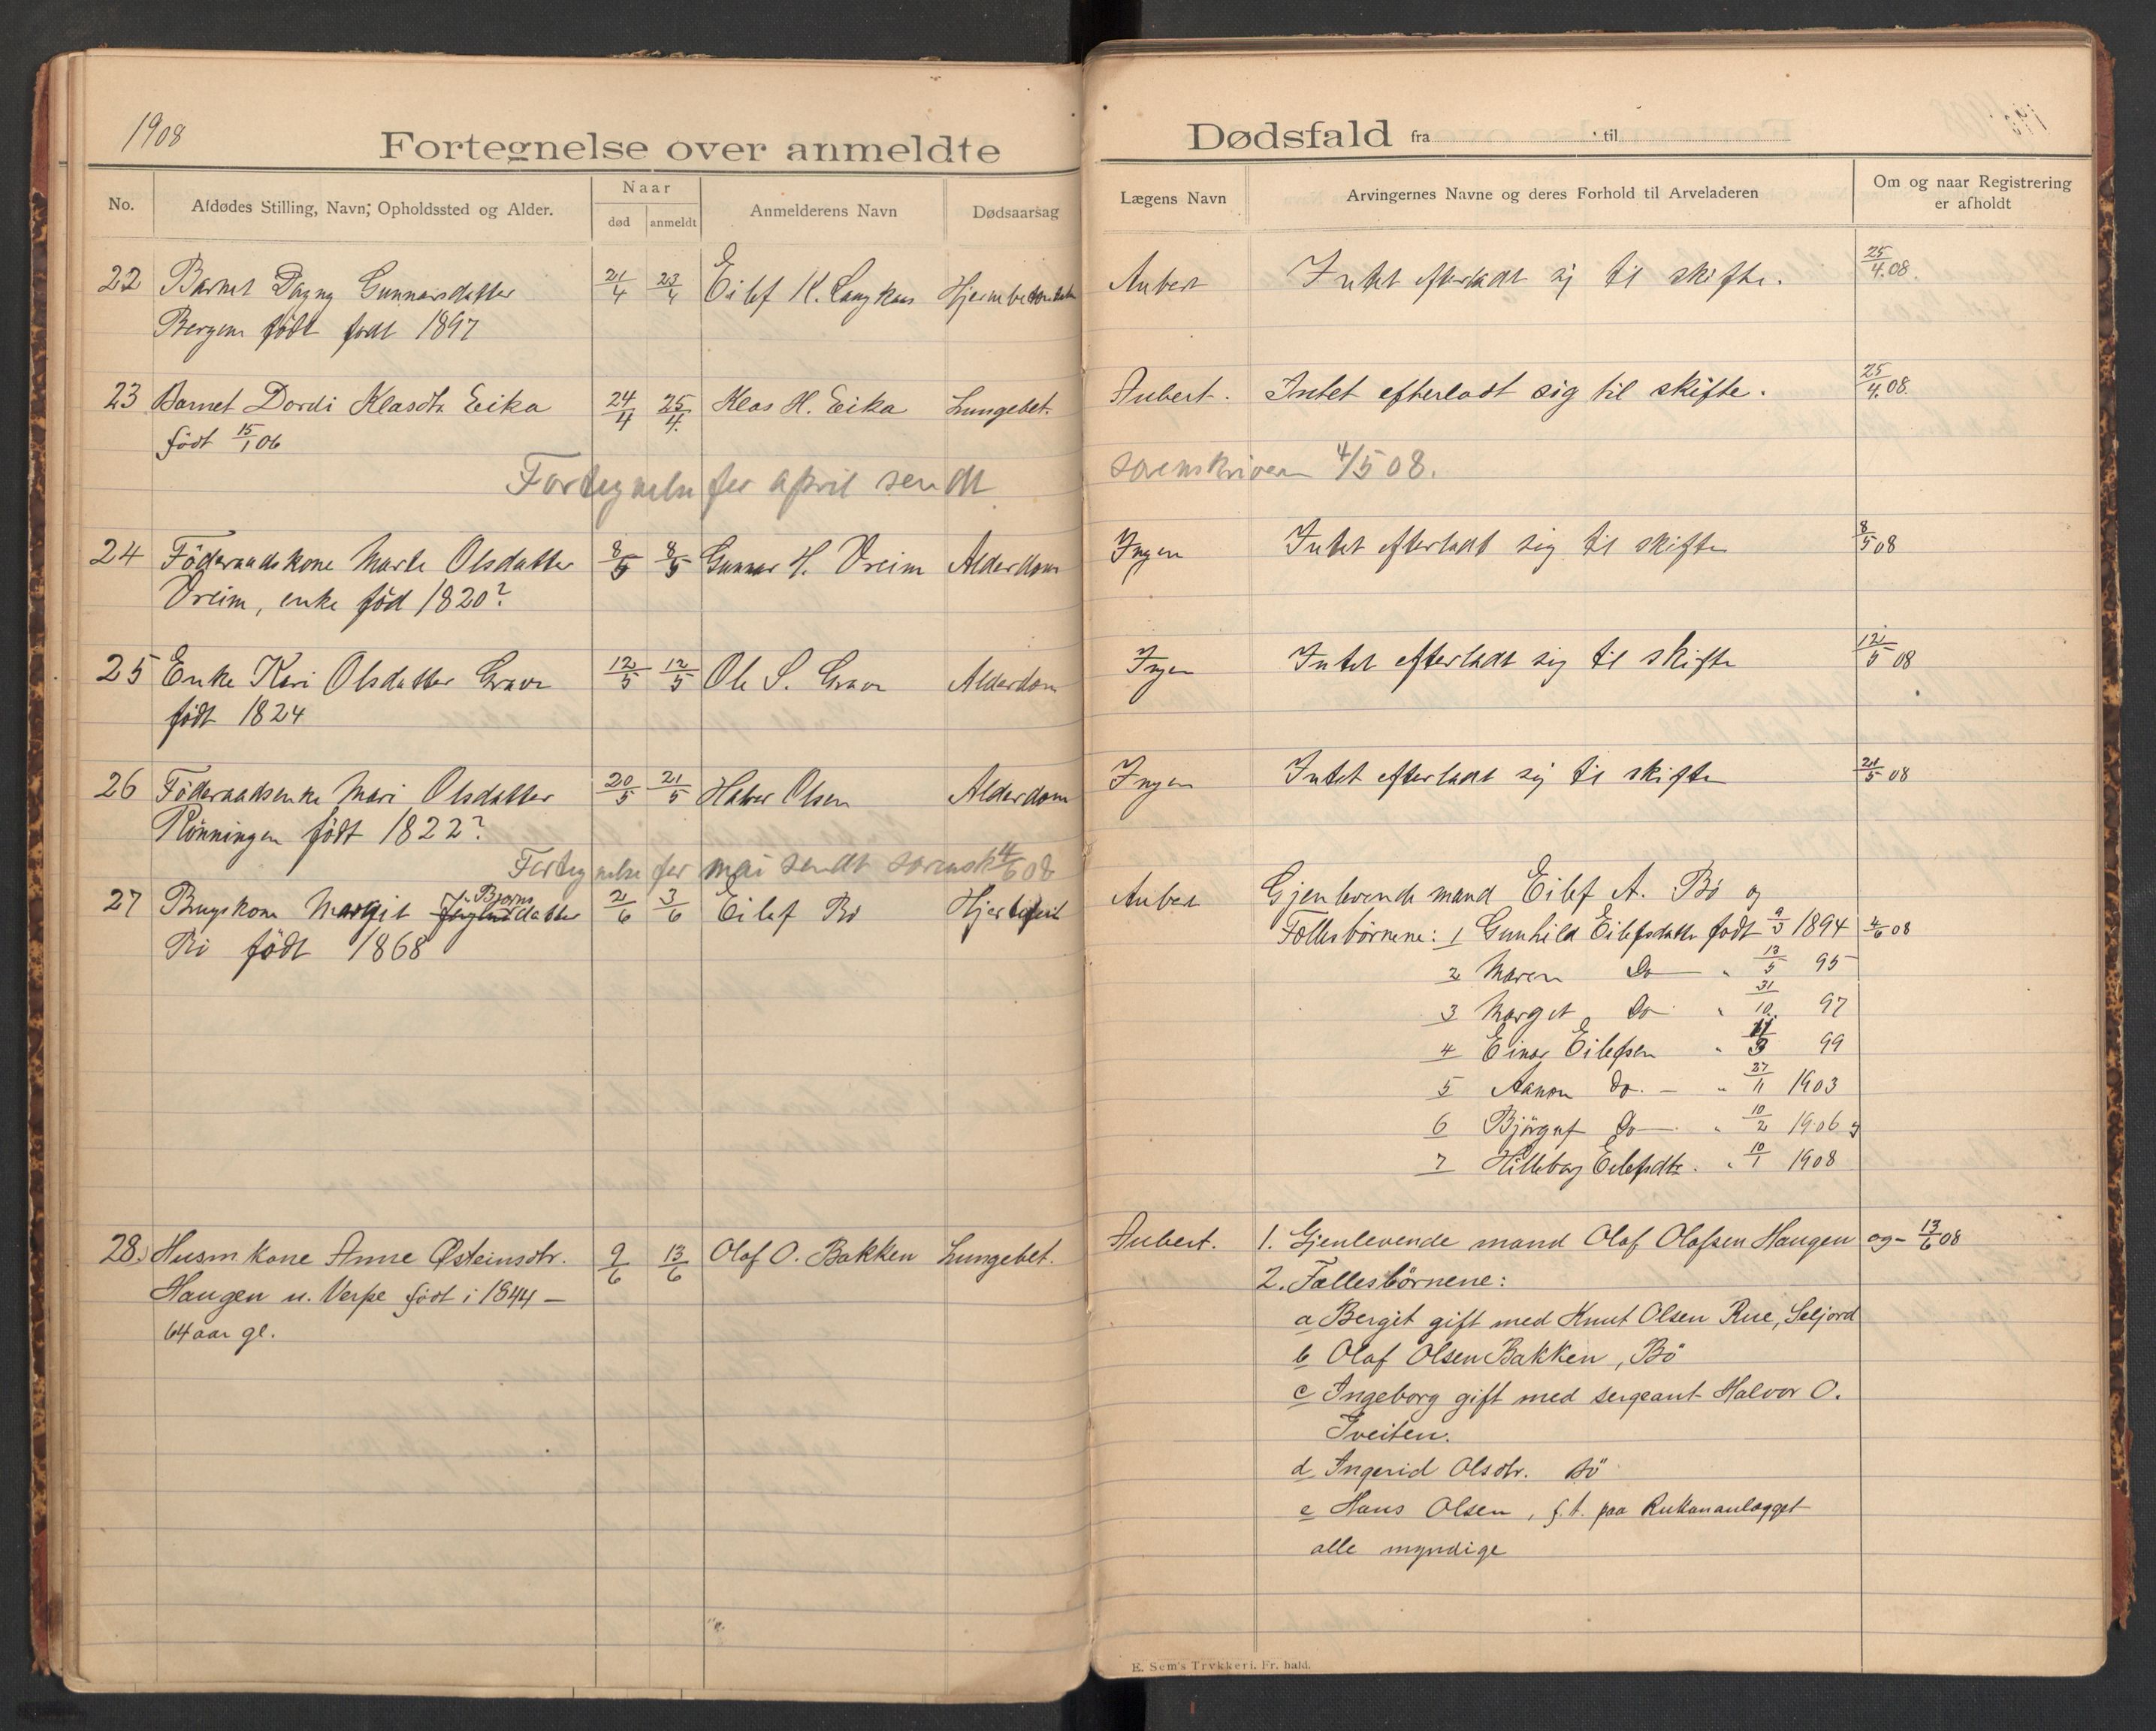 1908
Fortegnelse over anmeldte
Dødsfald fra til
No.
Afdødes Stilling, Navn, Opholdssted og Alder.
Naar
død
anmeldt
Anmelderens Navn
Dødsaarsag
Lægens Navn
Arvingernes Navne og deres Forhold til Arveladeren
Om og naar Registrering
er afholdt
22 Barnet Dagny Gunnarsdatter 21/4 23/4 Eilef K. Aubert Intet efterladt sig til skifte. 25/4.08.
Bergem født 1897
23 Barnet Dordi Klasdtr Eika 24/4 25/4. Klas H. Eika Lungebet. Aubert. Intet efterladt sig til skifte. 25/4.08.
født 15/1 06
Fortegnelse for april sendt sorenskriveren 4/5 08.
24 Föderaadskone Marte Olsdatter 8/5 8/5 Gunnar H. Vreim Alderdom Ingen Intet efterladt sig til skifte 8/5 08
Vreim, enke föd 1820?
25 Enke Kari Olsdatter Grave 12/5 12/5 Ole S. Grave Alderdom Ingen Intet efterladt sig til skifte 12/5 08
født 1824
26 Föderaadsenke Mari Olsdatter 20/5 21/5 Halvor Olsen Alderdom Ingen Intet efterladt sig til skifte 21/5 08
Rönningen født 1822?
Fortegnelse for mai sendt sorensk 4/6 08
27 Brugskone Margit Bjørns datter 2/6 3/6 Eilef Bö Hjertefeil Aubert Gjenlevende mand Eilef A. Bö og
Bö født 1868
Fællesbörnene: 1 Gunhild Eilefsdatter født 9/3 1894 4/6 08
2 Maren Do " 13/5 95
3 Margit Do " 31/10 97
4 Einar Eilefsen " 99
5 Aanon Do. - " 27/11 1903
6 Björguf Do - " 10/2 1906 og
7 Hilleborg Eilefsdtr. " 10/1 1908
28. Husm.kone Anne Østeinsdtr. 9/6 13/6 Olaf O. Bakken Lungebet. Aubert. 1. Gjenlevende mand Olaf Olafsen Haugen og - 13/6 08
Haugen u. Verpe født i 1844 -
64 aar gl.
2. Fællesbörnene:
a Bergit gift med Knut Olsen Rue, Seljord
b Olaf Olsen Bakken, Bö
c Ingeborg gift med sergeant Halvor O.
Tveiten.
d Ingerid Olsdtr. Bö
e Hans Olsen, f. t. paa Rukananlægget
alle myndige
E. Sem's Trykkeri, Fr.hald.